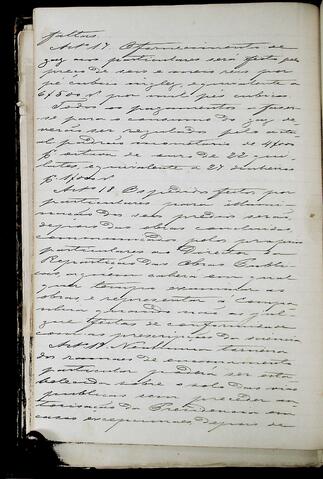 faltas.
Art. 17. O fornecimento de
gaz aos particulares será feito pelo
preço de seis e meio réis por
pé cubico inglez, equivalente a
6$500 rs por mil pés cubicos.
Todos os pagamentos a fazer-
se para o consumo do gaz de-
verão ser regulados pelo actu-
al padrão monetario de 4$000
por oitava de ouro de 22 qui-
lates, equivalente a 27 dinheiros
p. 1$000 rs
Art. 18. Os pedidos feitos por
particulares para illumi-
nação dos seus predios serão,
depois das obras concluidas,
communicados pelos proprios
particulares ao Director da
Repartição das Obras Publi-
cas, a quem caberá em qual-
quer tempo examinar as
obras, e representar á Compa-
nhia, quando não as jul-
gue feitas de conformidade
com as prescripções da sciencia
Art. 19. Nenhuma torneira
dos ramaes de encanamento
particular poderá ser esta-
belecida sobre o solo das vias
publicas sem preceder au-
torisação da Presidencia em
casos excepcionaes, depois de